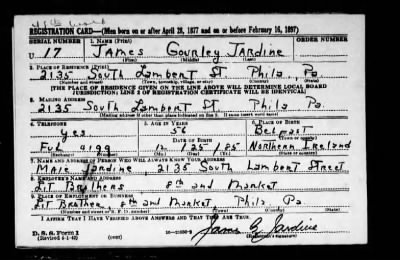 REGISTRATION CARD—(Men born on or after April 28, 1877 and on or before February 16, 1897)
SERIAL NUMBER 1. NAME (Print) ORDER NUMBER
U 17 James Gourley Jardine
(First) (Middle) (Last)
2. PLACE OF RESIDENCE (Print)
2135 South Lambert St. Phila. Pa.
(Number and street) (Town, township, village, or city) (County) (State)
[THE PLACE OF RESIDENCE GIVEN ON THE LINE ABOVE WILL DETERMINE LOCAL BOARD
JURISDICTION; LINE 2 OF REGISTRATION CERTIFICATE WILL BE IDENTICAL]
3. MAILING ADDRESS
2135 South Lambert St. Phila Pa.
[Mailing address if other than place indicated on line 2. If same insert word same]
4. TELEPHONE 5. AGE IN YEARS 6. PLACE OF BIRTH
yes 56 Belfast
DATE OF BIRTH (Town or county)
Ful 9199 12/25/85 Northern Ireland
(Exchange) (Number) (Mo.) (Day) (Yr.) (State or country)
7. NAME AND ADDRESS OF PERSON WHO WILL ALWAYS KNOW YOUR ADDRESS
Jardine, 2135 South Lambert Street
8. EMPLOYER'S NAME AND ADDRESS
Lit Brothers 8th and Market
9. PLACE OF EMPLOYMENT OR BUSINESS
Lit Brothers, 8th and Market, Phila. Pa.
(Number and street or R. F. D. number) (Town) (County) (State)
I AFFIRM THAT I HAVE VERIFIED ABOVE ANSWERS AND THAT THEY ARE TRUE.
D. S. S. Form 1
(Revised 4-1-42) (over) James G Jardine
(Registrant's signature)